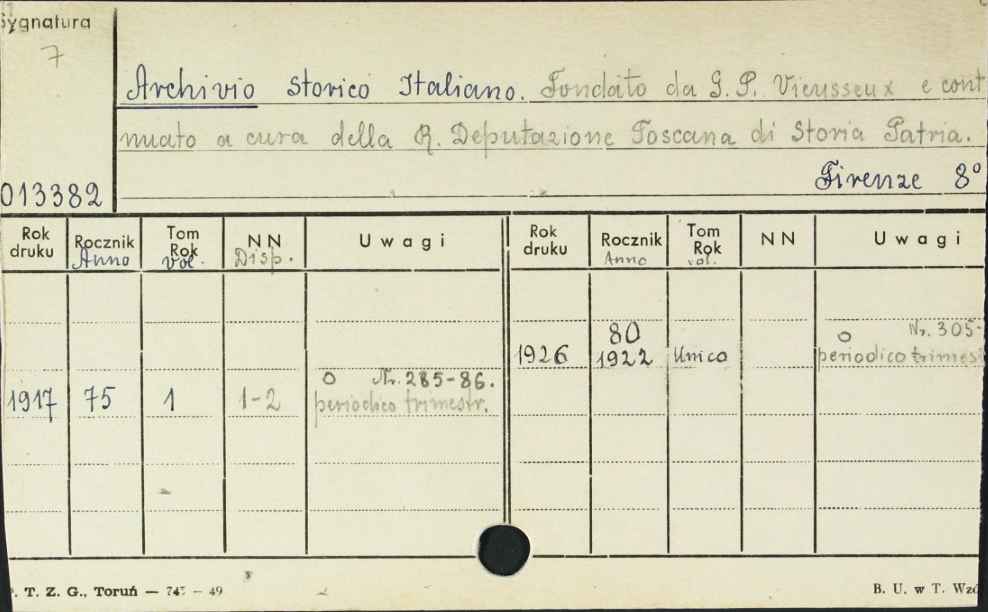 Sygnatura
7
Archivio Storico Italiano. Fondato da G. P. Vieusseux e cont
nuato a cura della R. Deputazione Toscana di Storia Patria.
Firenze 8°
013382
Rok druku Rocznik Anno Tom Rok vol. NN Disp. Uwagi Rok druku Rocznik Anno Tom Rok vol. NN Uwagi
80 o Nr. 305-
1926 1922 Unico periodico trimes
o Nr. 285-86.
1917 75 1 1-2 periodico trimestr.
. T. Z. G., Toruń — 747 - 49 B. U. w T. Wzó